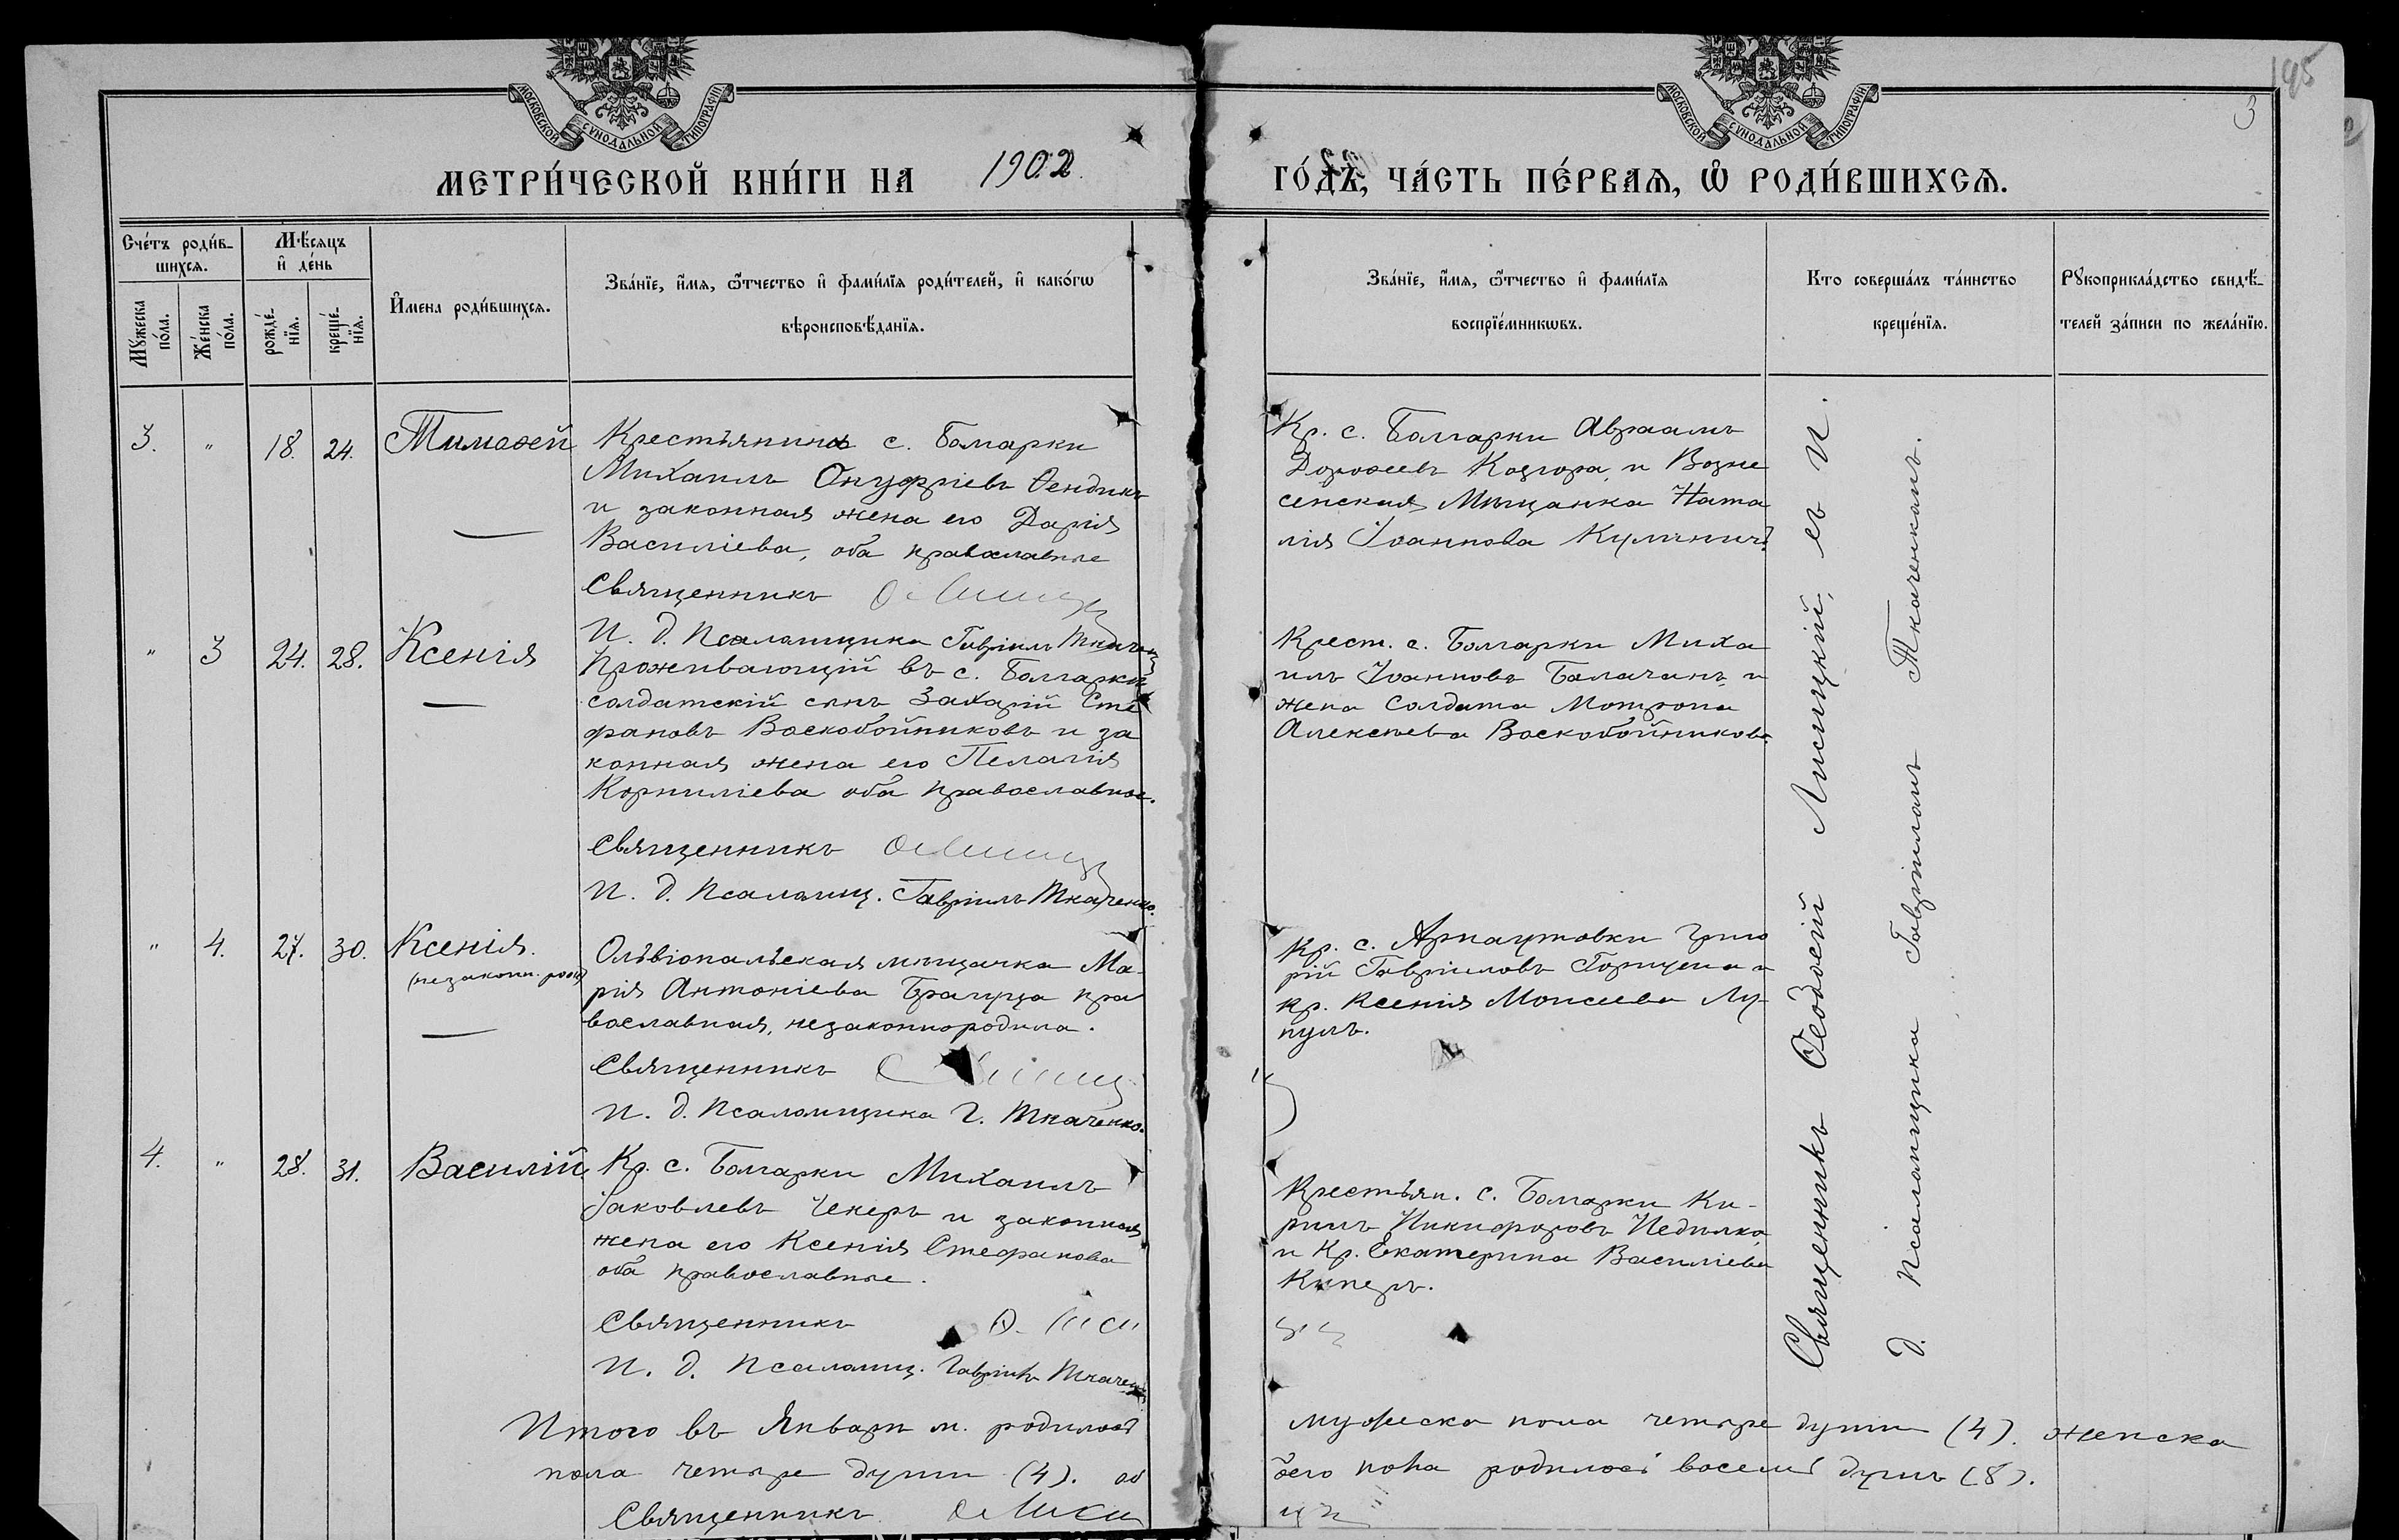 195
3
МОСКОВСКОЙ СѴНОДАЛЬНОЙ ТИПОГРАФІИ
МОСКОВСКОЙ СѴНОДАЛЬНОЙ ТИПОГРАФІИ
МЕТРИ́ЧЕСКОЙ КНИ́ГИ НА 1902 ГО́ДЪ, ЧА́СТЬ ПЕ́РВАѦ, Ѡ҆ РОДИ́ВШИХСѦ.
Сче́тъ роди́в-
шихсѧ.
Мꙋ́жеска
по́ла.
Же́нска
по́ла.
Мѣ́сѧцъ
и҆ де́нь
рожде́-
нїѧ.
креще́-
нїѧ.
И҆мена роди́вшихсѧ.
Зва́нїе, и҆́мѧ, ѻ҆́тчество и҆ фами́лїѧ роди́телей, и҆ како́гѡ
вѣроисповѣ́данїѧ.
Зва́нїе, и҆́мѧ, ѻ҆́тчество и҆ фами́лїѧ
воспрїе́мникѡвъ.
Кто соверша́лъ та́инство
креще́нїѧ.
Рꙋкоприкла́дство свидѣ́-
телей за́писи по жела́нїю.
3. " 18. 24. Тимоѳей
Крестьянинъ с. Болгарки
Михаилъ Онуфріевъ Ѳендикъ
и законная жена его Дарія
Василіева, оба православные
Священникъ
И. д. Псаломщика Гавріилъ Ткаченко
Кр. с. Болгарки Авраамъ
Дороѳеевъ Козгора, и Возне
сенская Мѣщанка Ната
лія Іоаннова Куличичъ
" 3 24. 28. Ксенія
Проживающій въ с. Болгарки
солдатскій сынъ Захарій Сте
фановъ Воскобойниковъ и за
конная жена его Пелагія
Корниліева оба православные.
Священникъ
И. д. Псаломщ. Гавріилъ Ткаченко.
Крест. с. Болгарки Миха
илъ Іоанновъ Балачанъ, и
жена Солдата Мотрона
Алексѣева Воскобойникова
" 4. 27. 30. Ксенія.
(незаконн. рожд)
Ольвіопольская мѣщанка Ма-
рія Антоніева Брагуца пра
вославная, незаконнородила.
Священникъ
И. д. Псаломщика Г. Ткаченко.
Кр. с. Арнаутовки Григо
рій Гавріиловъ Горщела и
кр. Ксенія Моисеева Лу-
пулъ.
4. " 28. 31. Василій.
Кр. с. Болгарки Михаилъ
Іаковлевъ Чекеръ и законная
жена его Ксенія Стефанова
оба православные.
Священникъ
И. д. Псаломщ. Гавріилъ Ткаченко
Крестьян. с. Болгарки Ки-
рилъ Никифоровъ Недилко
и Кр. Екатерина Василіева
Киперъ.
Священникъ Ѳеодосій Лисицкій, съ И.
д. Псаломщика Гавріиломъ Ткаченкомъ.
Итого въ Январѣ м. родилось мужеска пола четыре души (4). женска
пола четыре души (4). обоего пола родилось восемь душъ (8).
Священникъ